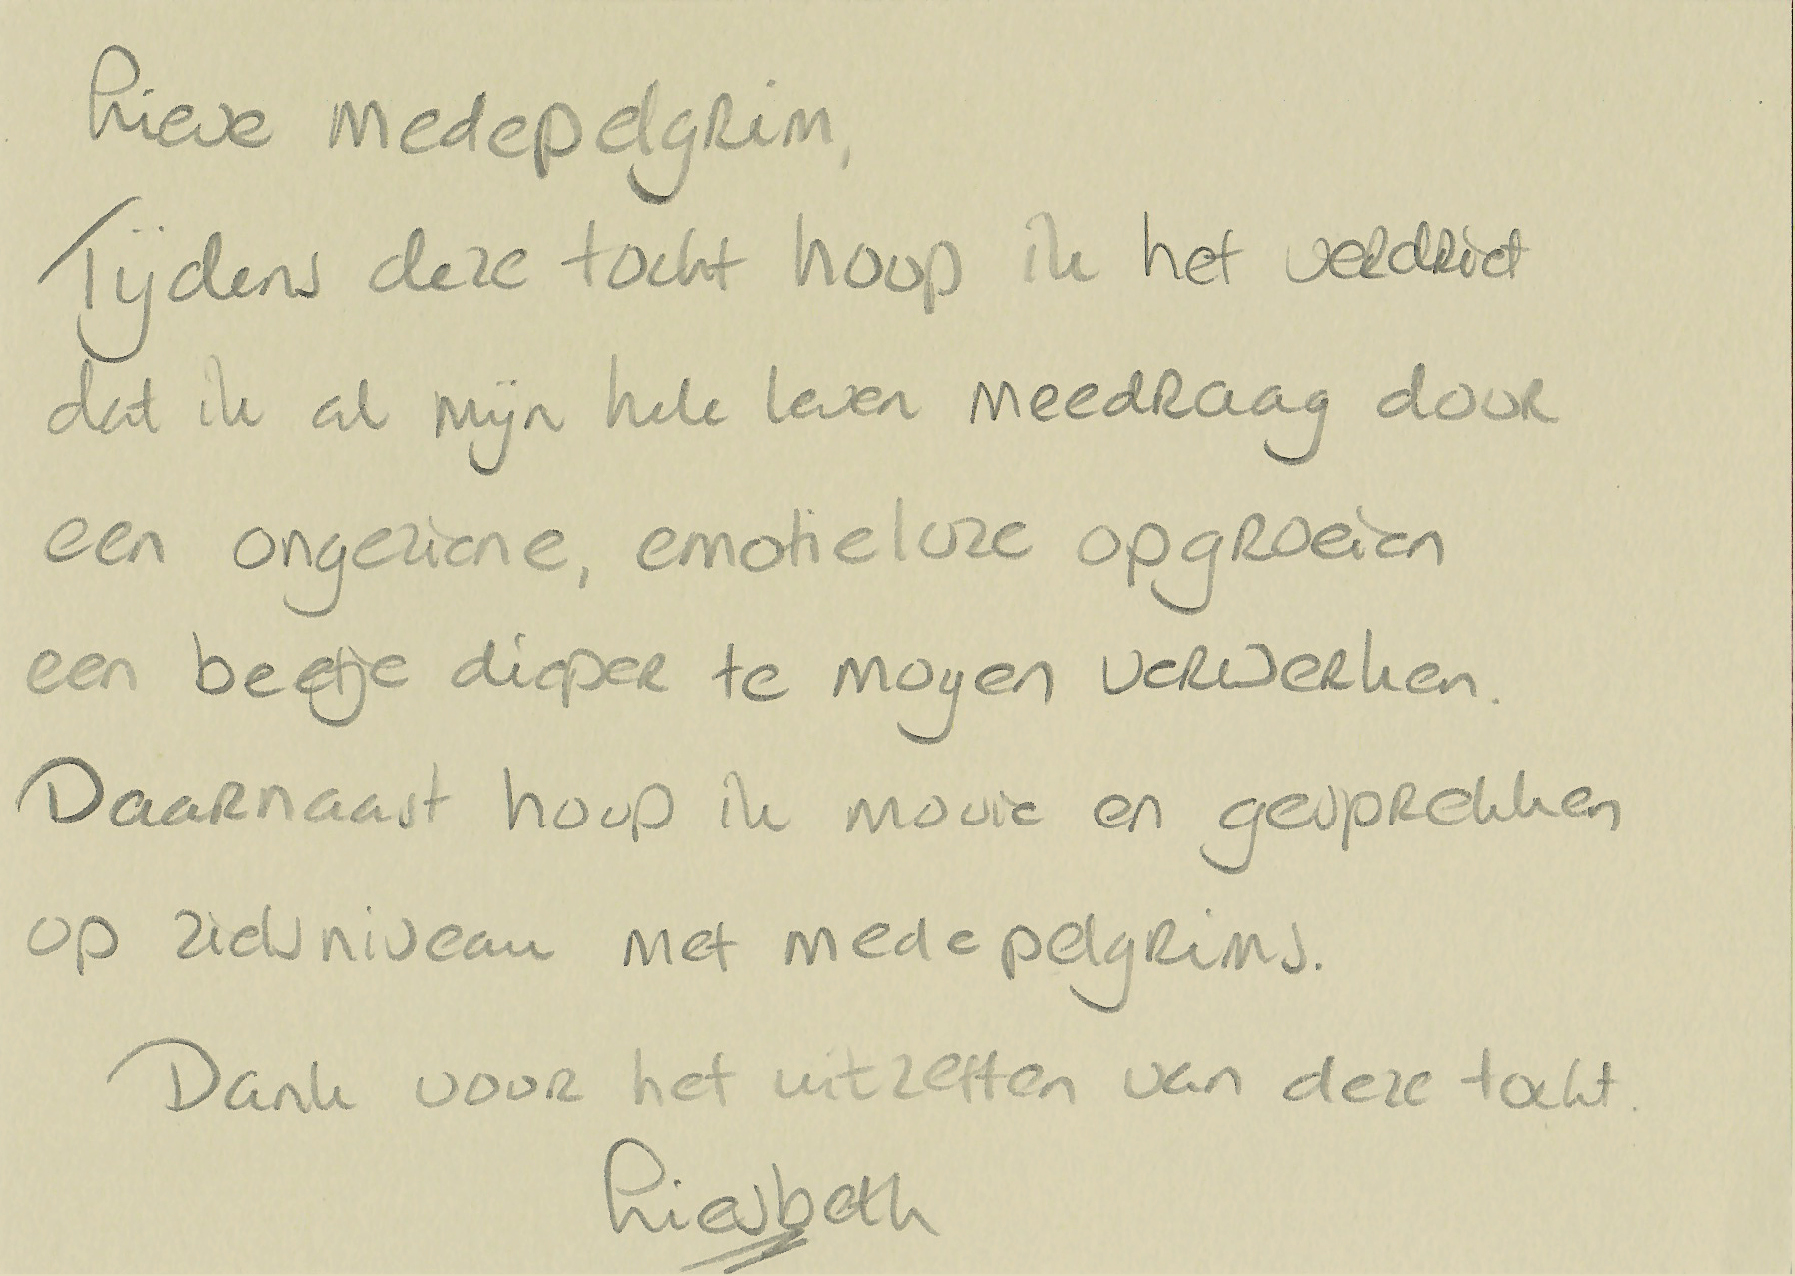 Lieve medepelgrim,
Tijdens deze tocht hoop ik het verdriet
dat ik al mijn hele leven meedraag door
een ongeziene, emotieloze opgroeien
een beetje dieper te mogen verwerken.
Daarnaast hoop ik mooie en gesprekken
op zielsniveau met medepelgrims.
Dank voor het uitzetten van deze tocht.
Liesbeth